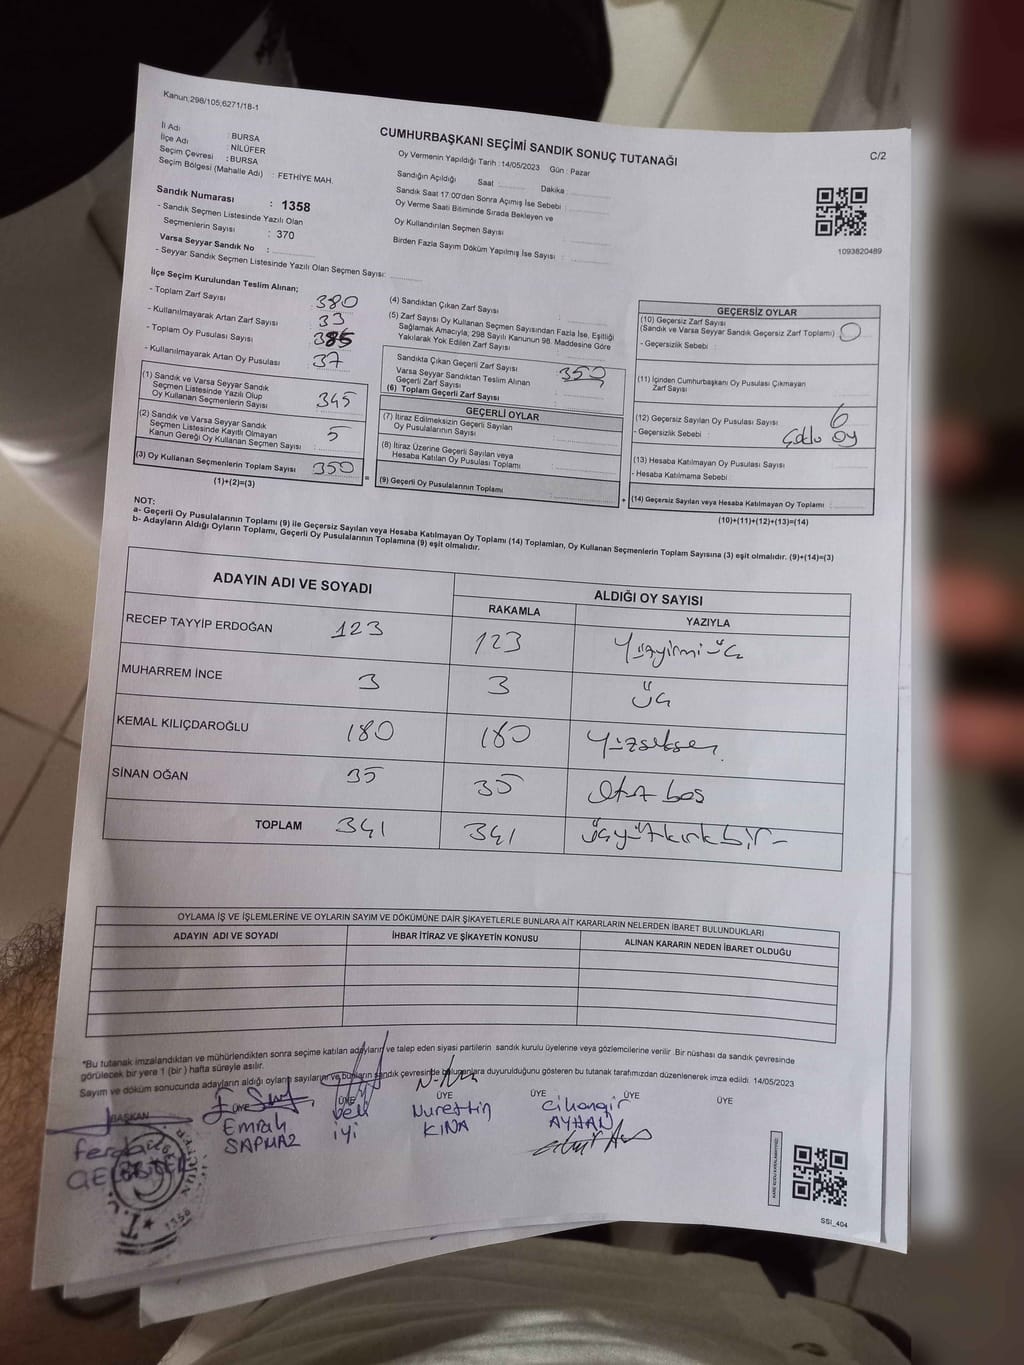 Kanun;298/105;6271/18-1
CUMHURBAŞKANI SEÇİMİ SANDIK SONUÇ TUTANAĞI
C/2
İl Adı : BURSA
İlçe Adı : NİLÜFER
Seçim Çevresi : BURSA
Seçim Bölgesi (Mahalle Adı) : FETHİYE MAH.
Sandık Numarası : 1358
- Sandık Seçmen Listesinde Yazılı Olan
Seçmenlerin Sayısı : 370
Varsa Seyyar Sandık No :
- Seyyar Sandık Seçmen Listesinde Yazılı Olan Seçmen Sayısı:
Oy Vermenin Yapıldığı Tarih : 14/05/2023 Gün : Pazar
Sandığın Açıldığı Saat Dakika
Sandık Saat 17:00'den Sonra Açımış İse Sebebi
Oy Verme Saati Bitiminde Sırada Bekleyen ve
Oy Kullandırılan Seçmen Sayısı
Birden Fazla Sayım Döküm Yapılmış İse Sayısı
1093820489
İlçe Seçim Kurulundan Teslim Alınan;
- Toplam Zarf Sayısı 380
- Kullanılmayarak Artan Zarf Sayısı 33
- Toplam Oy Pusulası Sayısı 385
- Kullanılmayarak Artan Oy Pusulası 37
(1) Sandık ve Varsa Seyyar Sandık
Seçmen Listesinde Yazılı Olup
Oy Kullanan Seçmenlerin Sayısı 345
(2) Sandık ve Varsa Seyyar Sandık
Seçmen Listesinde Kayıtlı Olmayan
Kanun Gereği Oy Kullanan Seçmen Sayısı 5
(3) Oy Kullanan Seçmenlerin Toplam Sayısı 350
(1)+(2)=(3)
=
(4) Sandıktan Çıkan Zarf Sayısı
(5) Zarf Sayısı Oy Kullanan Seçmen Sayısından Fazla İse, Eşitliği
Sağlamak Amacıyla, 298 Sayılı Kanunun 98. Maddesine Göre
Yakılarak Yok Edilen Zarf Sayısı
Sandıkta Çıkan Geçerli Zarf Sayısı 350
Varsa Seyyar Sandıktan Teslim Alınan
Geçerli Zarf Sayısı
(6) Toplam Geçerli Zarf Sayısı
GEÇERLİ OYLAR
(7) İtiraz Edilmeksizin Geçerli Sayılan
Oy Pusulalarının Sayısı
(8) İtiraz Üzerine Geçerli Sayılan veya
Hesaba Katılan Oy Pusulası Toplamı
(9) Geçerli Oy Pusulalarının Toplamı
+
GEÇERSİZ OYLAR
(10) Geçersiz Zarf Sayısı
(Sandık ve Varsa Seyyar Sandık Geçersiz Zarf Toplamı) 0
- Geçersizlik Sebebi
(11) İçinden Cumhurbaşkanı Oy Pusulası Çıkmayan
Zarf Sayısı
(12) Geçersiz Sayılan Oy Pusulası Sayısı 6
- Geçersizlik Sebebi : Çoklu oy
(13) Hesaba Katılmayan Oy Pusulası Sayısı
- Hesaba Katılmama Sebebi
(14) Geçersiz Sayılan veya Hesaba Katılmayan Oy Toplamı
(10)+(11)+(12)+(13)=(14)
NOT:
a- Geçerli Oy Pusulalarının Toplamı (9) ile Geçersiz Sayılan veya Hesaba Katılmayan Oy Toplamı (14) Toplamları, Oy Kullanan Seçmenlerin Toplam Sayısına (3) eşit olmalıdır. (9)+(14)=(3)
b- Adayların Aldığı Oyların Toplamı, Geçerli Oy Pusulalarının Toplamına (9) eşit olmalıdır.
ADAYIN ADI VE SOYADI ALDIĞI OY SAYISI
RAKAMLA YAZIYLA
RECEP TAYYİP ERDOĞAN 123 123 Yüzyirmi üç
MUHARREM İNCE 3 3 üç
KEMAL KILIÇDAROĞLU 180 180 Yüzseksen
SİNAN OĞAN 35 35 Otuz beş
TOPLAM 341 341 üçyüzkırkbir
OYLAMA İŞ VE İŞLEMLERİNE VE OYLARIN SAYIM VE DÖKÜMÜNE DAİR ŞİKAYETLERLE BUNLARA AİT KARARLARIN NELERDEN İBARET BULUNDUKLARI
ADAYIN ADI VE SOYADI İHBAR İTİRAZ VE ŞİKAYETİN KONUSU ALINAN KARARIN NEDEN İBARET OLDUĞU
*Bu tutanak imzalandıktan ve mühürlendikten sonra seçime katılan adayların ve talep eden siyasi partilerin sandık kurulu üyelerine veya gözlemcilerine verilir. Bir nüshası da sandık çevresinde
görülecek bir yere 1 (bir) hafta süreyle asılır.
Sayım ve döküm sonucunda adayların aldığı oyların sayılarıyla bunların sandık çevresinde bulunanlara duyurulduğunu gösteren bu tutanak tarafımızdan düzenlenerek imza edildi. 14/05/2023
BAŞKAN ÜYE ÜYE ÜYE ÜYE ÜYE ÜYE
Emrah
SAPMAZ
iyi
Nurettin
KINA
Cihangir
AYHAN
1358
SSI_404